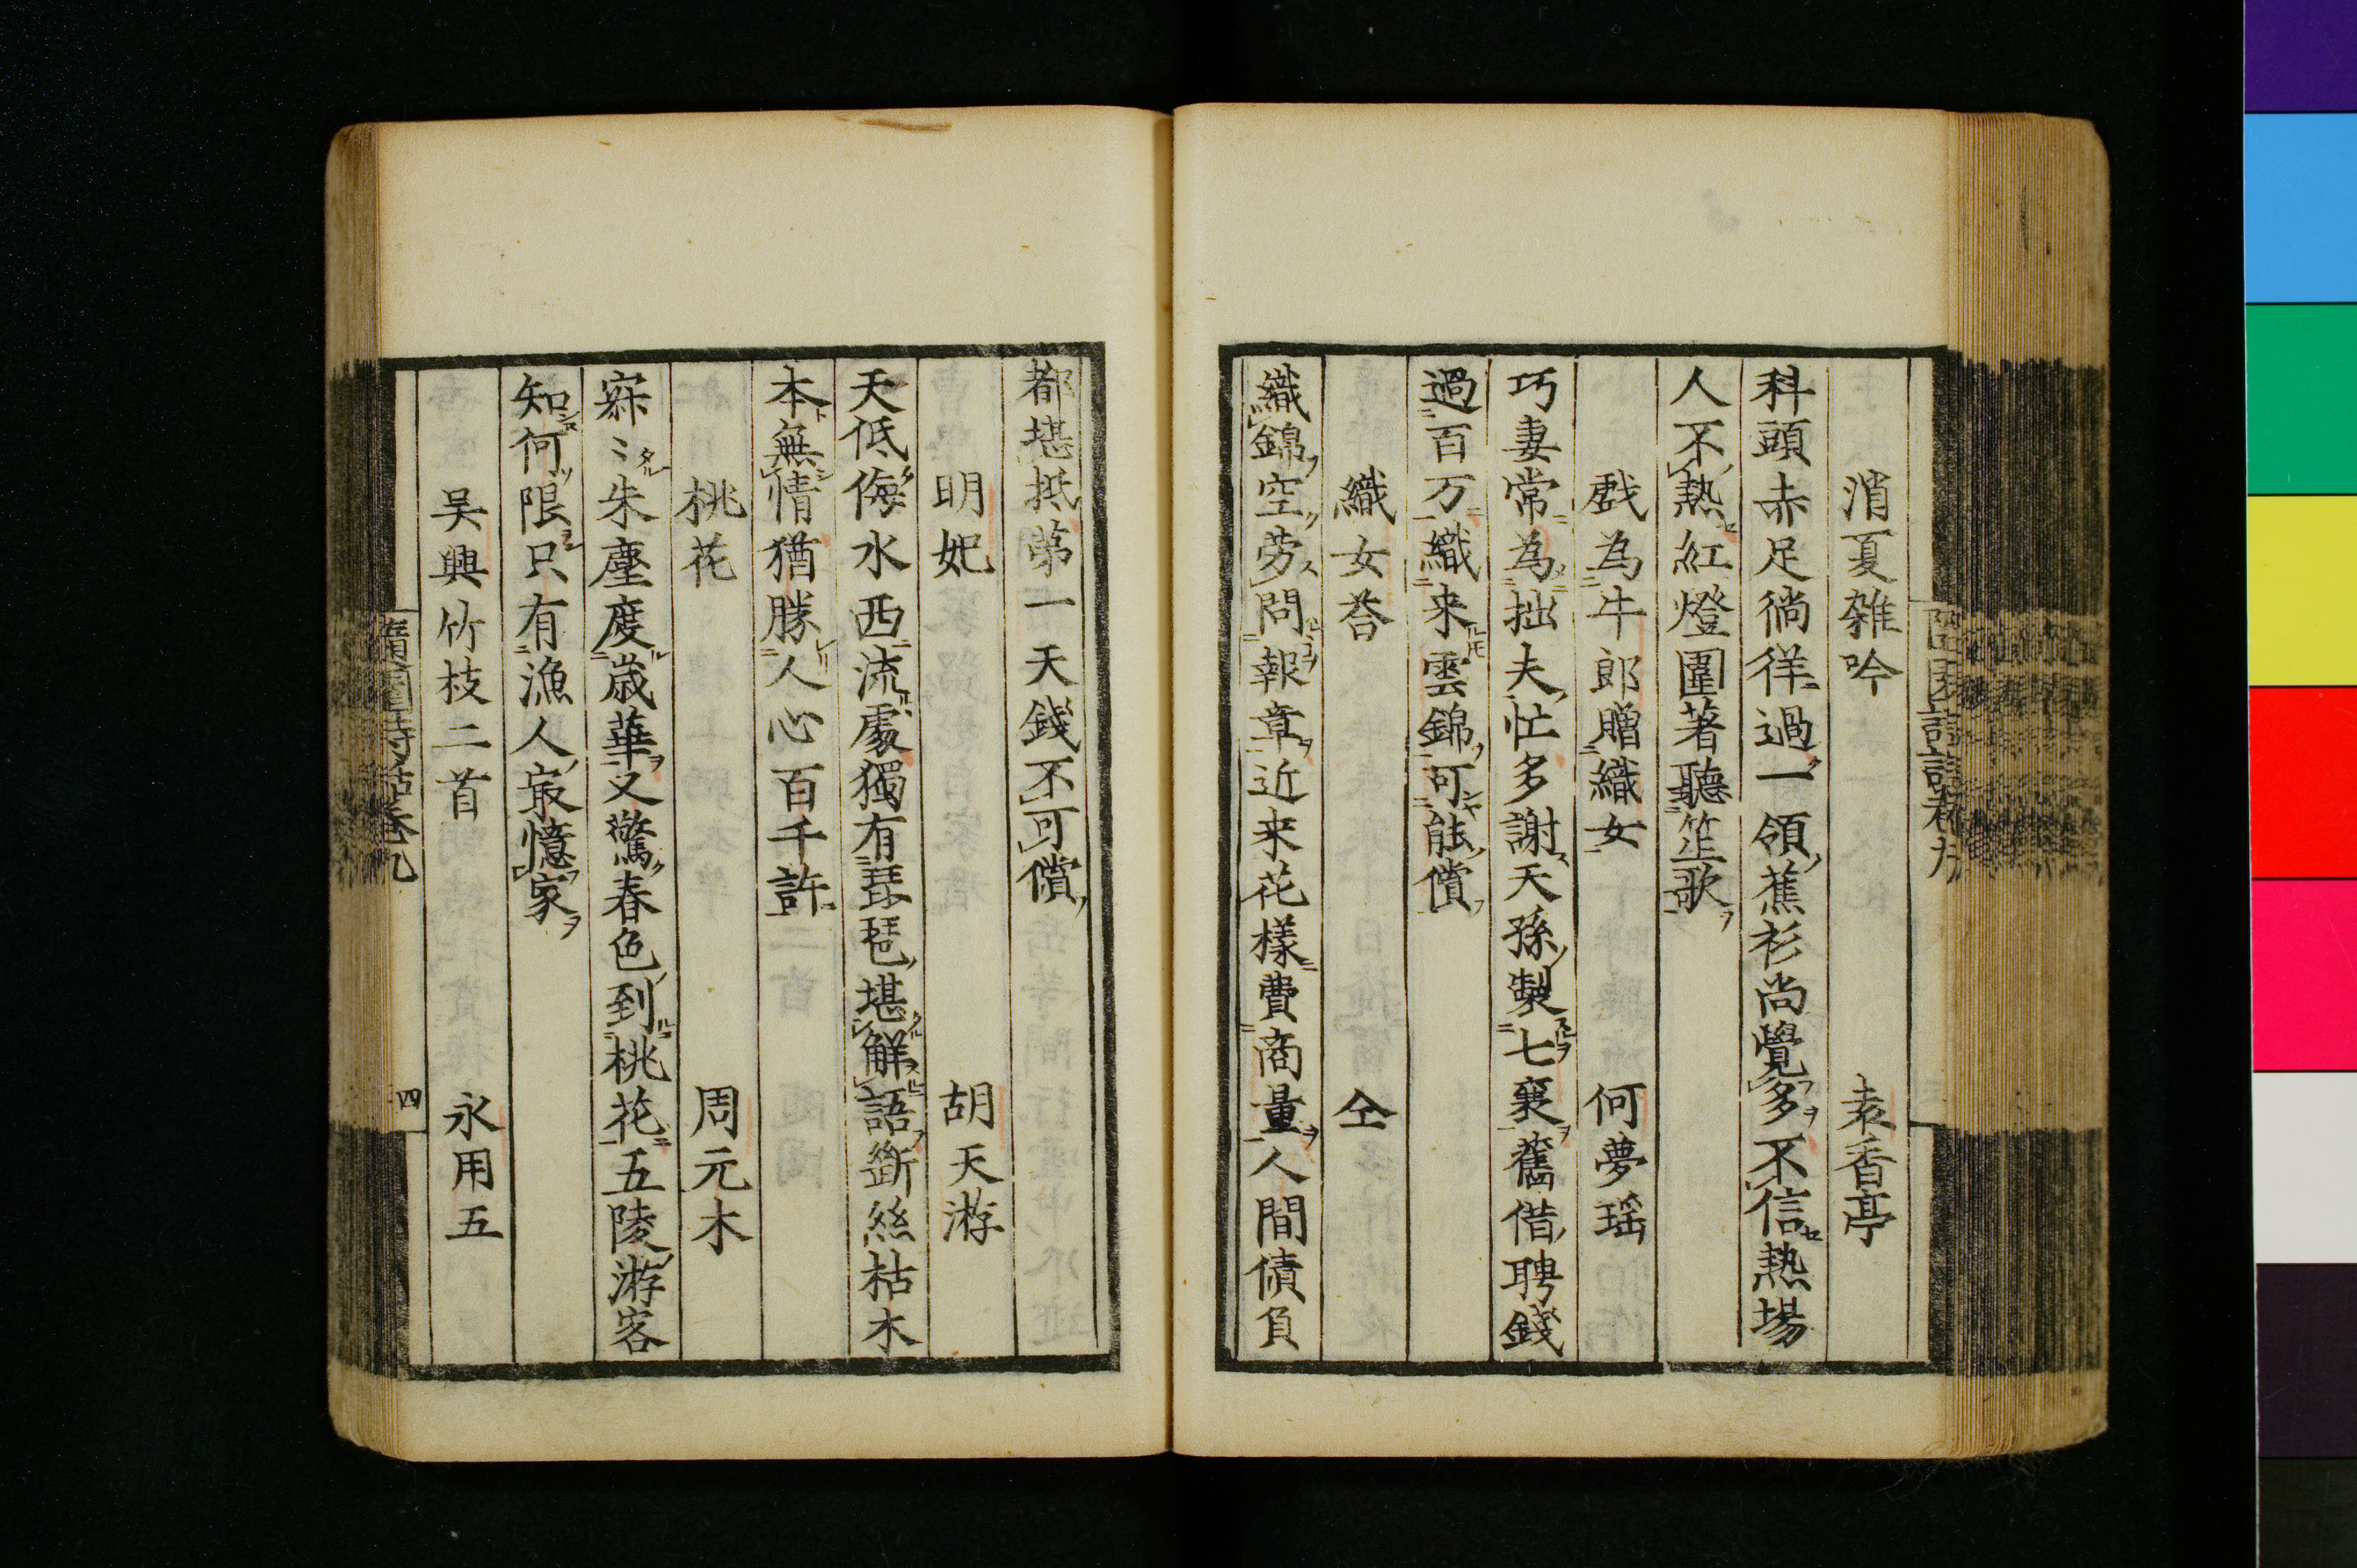 消夏雑吟 袁香亭
科頭赤足徜徉過一領蕉衫尚覺多不信熱場
人不熱紅燈圍著聽笙歌
戲為牛郎贈織女 何夢瑶
巧妻常為拙夫忙多謝天孫製七襄舊借聘錢
過百万織来雲錦可能償
織女荅 仝
織錦空劳問報章近来花樣費商量人間債負
都堪抵苐一天錢不可償
明妃 胡天游
天低海水西流處獨有琵琶堪解語斷絲枯木
本無情猶勝人心百千許
桃花 周元木
寂〻朱塵度歳華又驚春色到桃花五陵游客
知何限只有漁人冣憶家
吴興竹枝二首 永用五
隨園詩話卷九
四